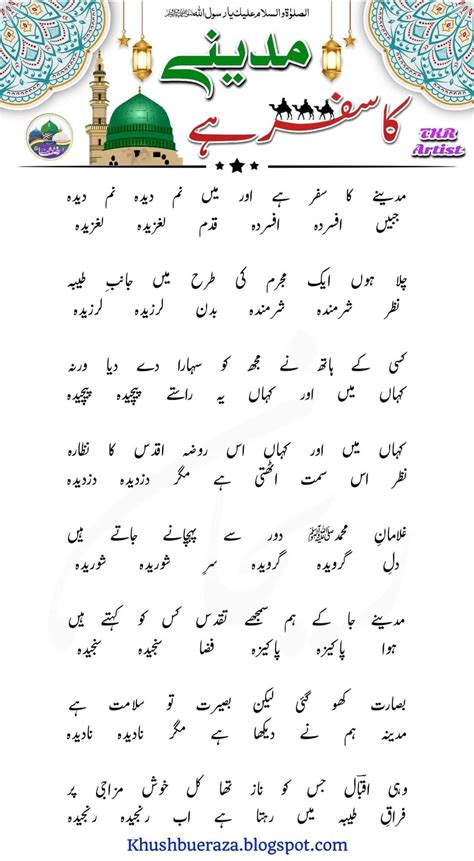 الصلوٰۃ والسلام علیک یا رسول اللہ ﷺ
مدینے
کا سفر ہے
TKR
Artist
مدینے کا سفر ہے اور میں نم دیدہ نم دیدہ
جبیں افسردہ افسردہ قدم لغزیدہ لغزیدہ
چلا ہوں ایک مجرم کی طرح میں جانبِ طیبہ
نظر شرمندہ شرمندہ بدن لرزیدہ لرزیدہ
کسی کے ہاتھ نے مجھ کو سہارا دے دیا ورنہ
کہاں میں اور کہاں یہ راستے پیچیدہ پیچیدہ
کہاں میں اور کہاں اس روضہ اقدس کا نظارہ
نظر اس سمت اٹھتی ہے مگر دزدیدہ دزدیدہ
غلامانِ محمد ﷺ دور سے پہچانے جاتے ہیں
دلِ گرویدہ گرویدہ سرِ شوریدہ شوریدہ
مدینے جا کے ہم سمجھے تقدس کس کو کہتے ہیں
ہوا پاکیزہ پاکیزہ فضا سنجیدہ سنجیدہ
بصارت کھو گئی لیکن بصیرت تو سلامت ہے
مدینہ ہم نے دیکھا ہے مگر نادیدہ نادیدہ
وہی اقبالؔ جس کو ناز تھا کل خوش مزاجی پر
فراقِ طیبہ میں رہتا ہے اب رنجیدہ رنجیدہ
Khushbueraza.blogspot.com